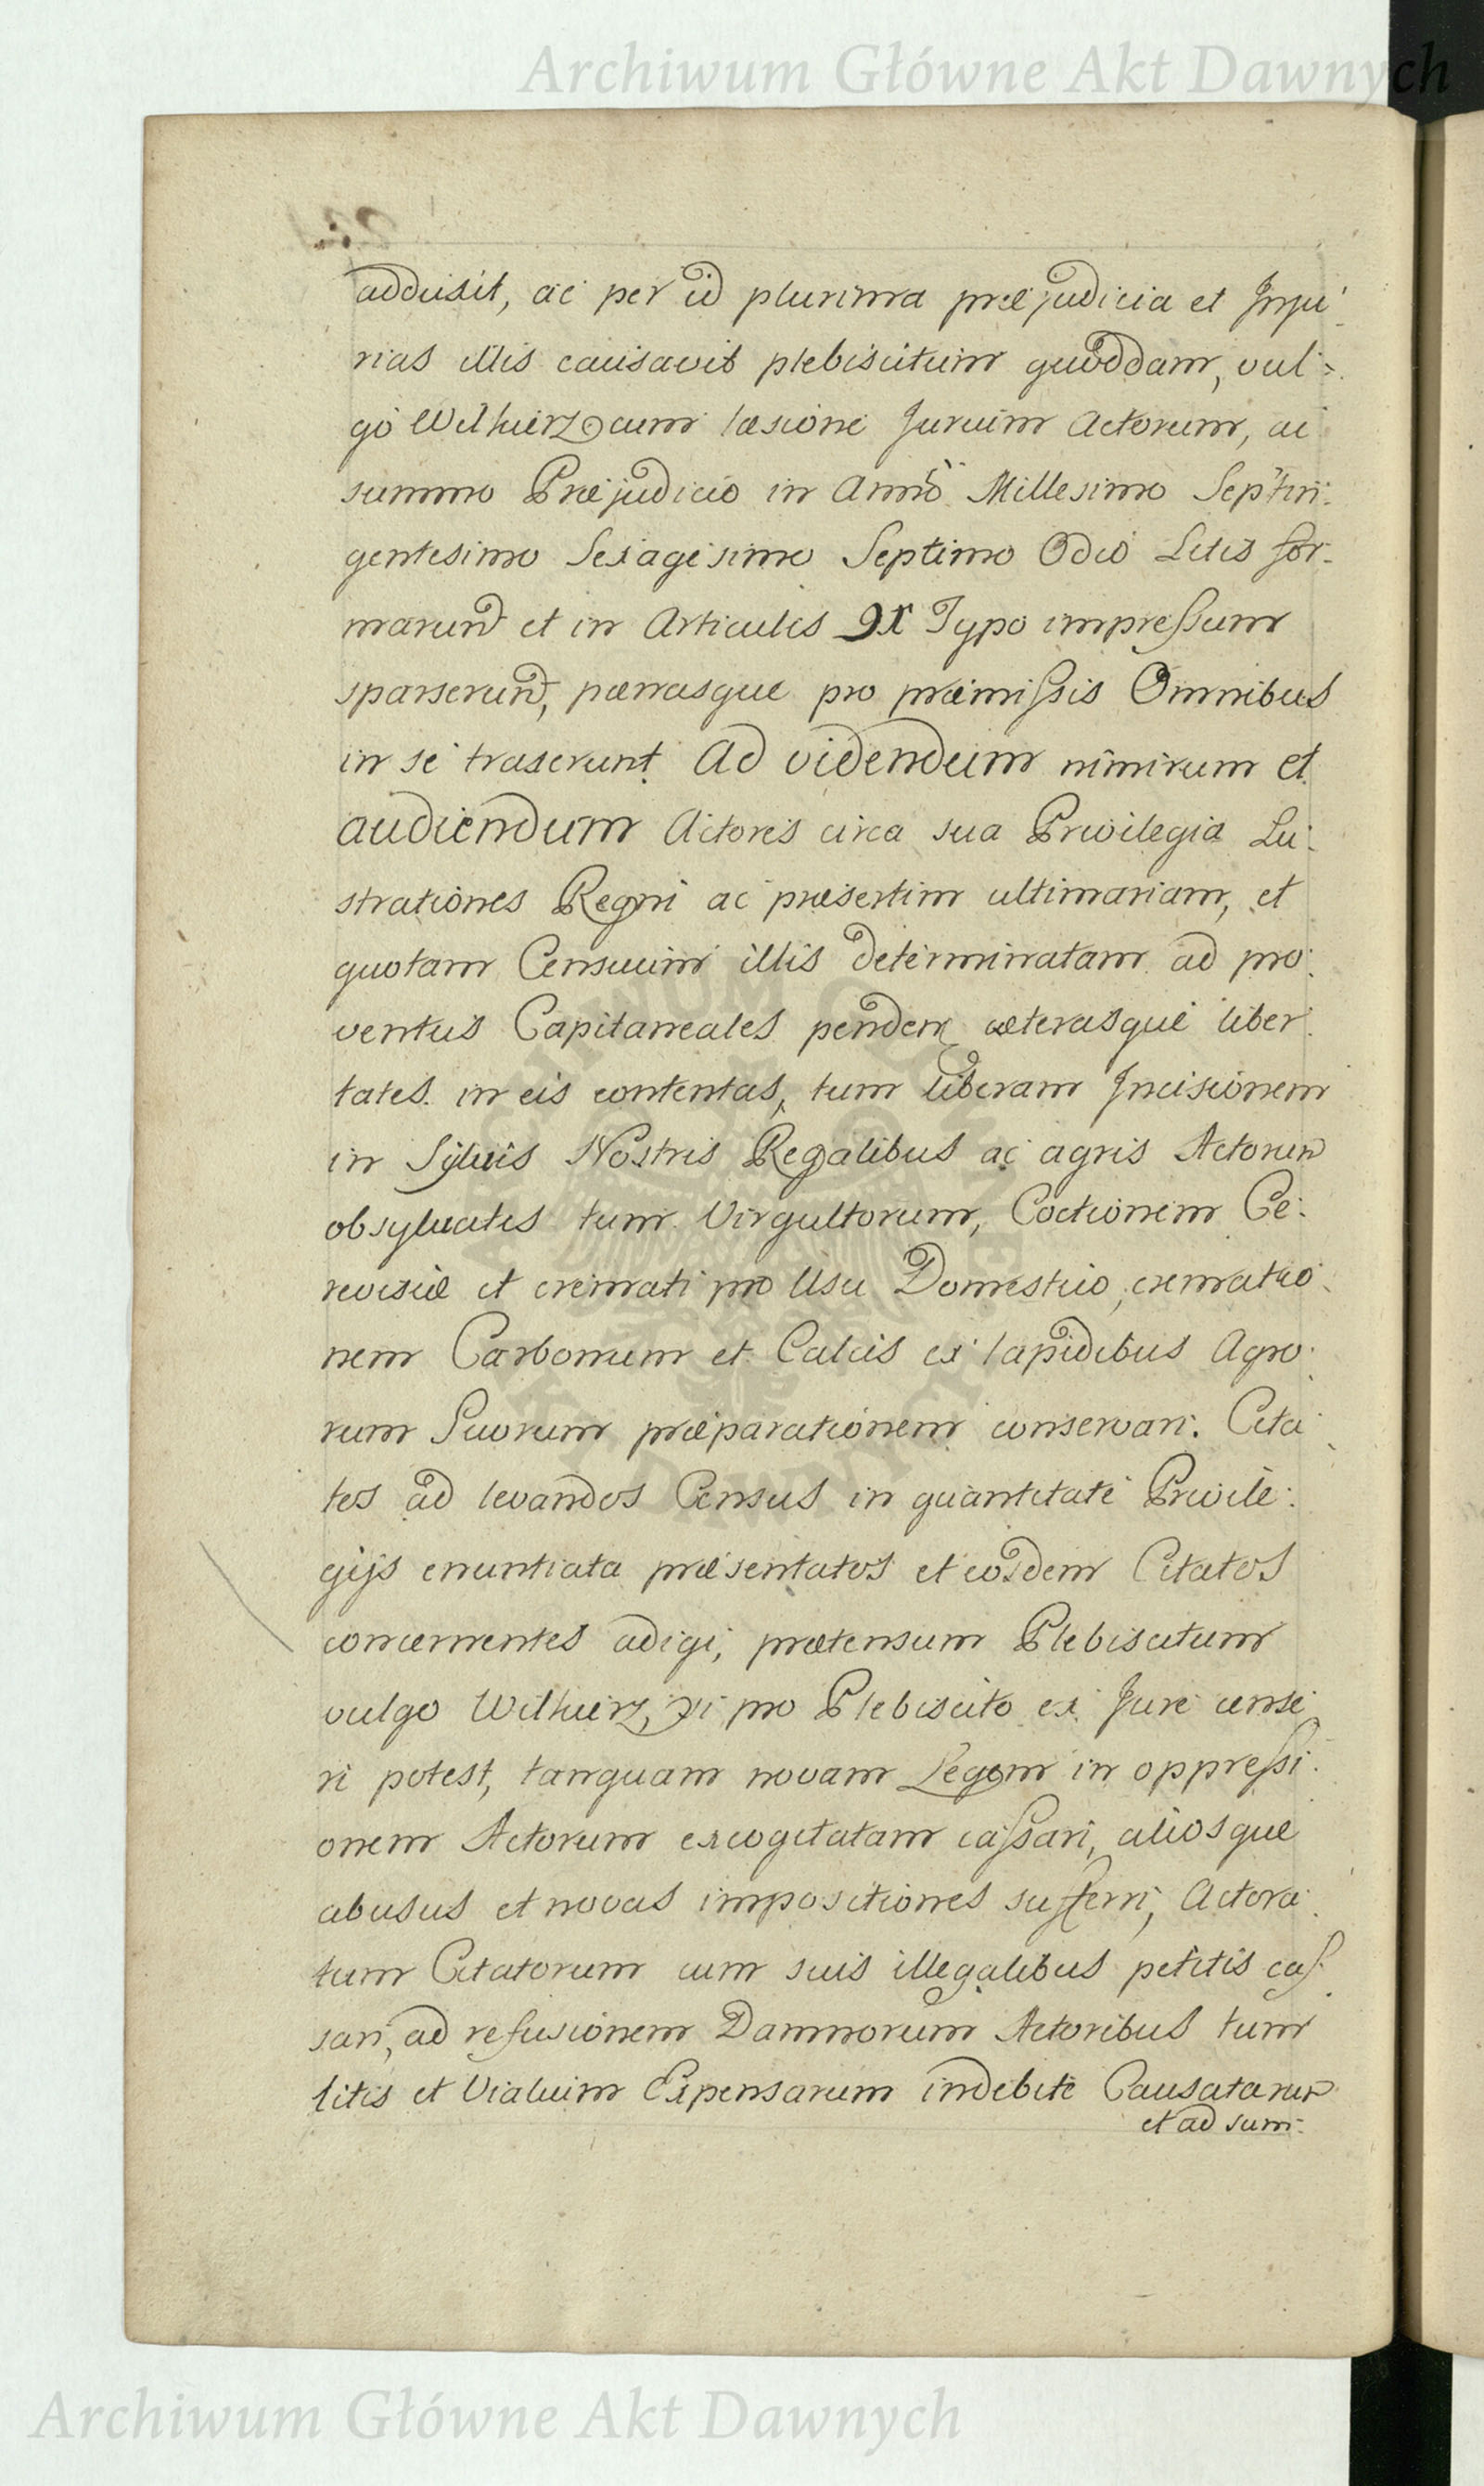 Archiwum Główne Akt Dawnych
adduxit, ac per id plurima præjudicia et Inju-
rias illis causavit plebiscitum quoddam, vul-
go Wilkierz cum læsione Jurium Actorum, ac
summo Præjudicio in Anno Millesimo Septin-
gentesimo Sexagesimo Septimo Odio Litis for-
marunt et in Articulis IX Typo impressum
sparserunt, pœnasque pro præmissis Omnibus
in se traxerunt. Ad videndum nimirum et
audiendum Actores circa sua Privilegia Lu-
strationes Regni ac præsertim ultimariam, et
quotam Censuum illis determinatam ad pro-
ventus Capitaneales penden cæterasque liber-
tates in eis contentas, tum liberam Incisionem
in Sylvis Nostris Regalibus ac agris Actorum
obsylvatis tum Virgultorum, Coctionem Ce-
revisiæ et cremati pro Usu Domestico, cremātio-
nem Carbonum et Calcis ex lapidibus Agro-
rum Suorum præparationem conservari. Cita-
tos ad levandos Census in quantitate Privile-
gijs enuntiata præsentatos et eosdem Citatos
concernentes adigi, prætensum Plebiscitum
vulgo Wilkierz, si pro Plebiscito ex Jure cense-
ri potest, tanquam novam Legem in oppressi-
onem Actorum excogitatam cassari, aliosque
abusus et novas impositiones sufferri, Actora-
tum Citatorum cum suis illegalibus petitis cas-
sari, ad refusionem Damnorum Actoribus tum
litis et Vialium Expensarum indebite Causatarum
et ad sum-
Archiwum Główne Akt Dawnych